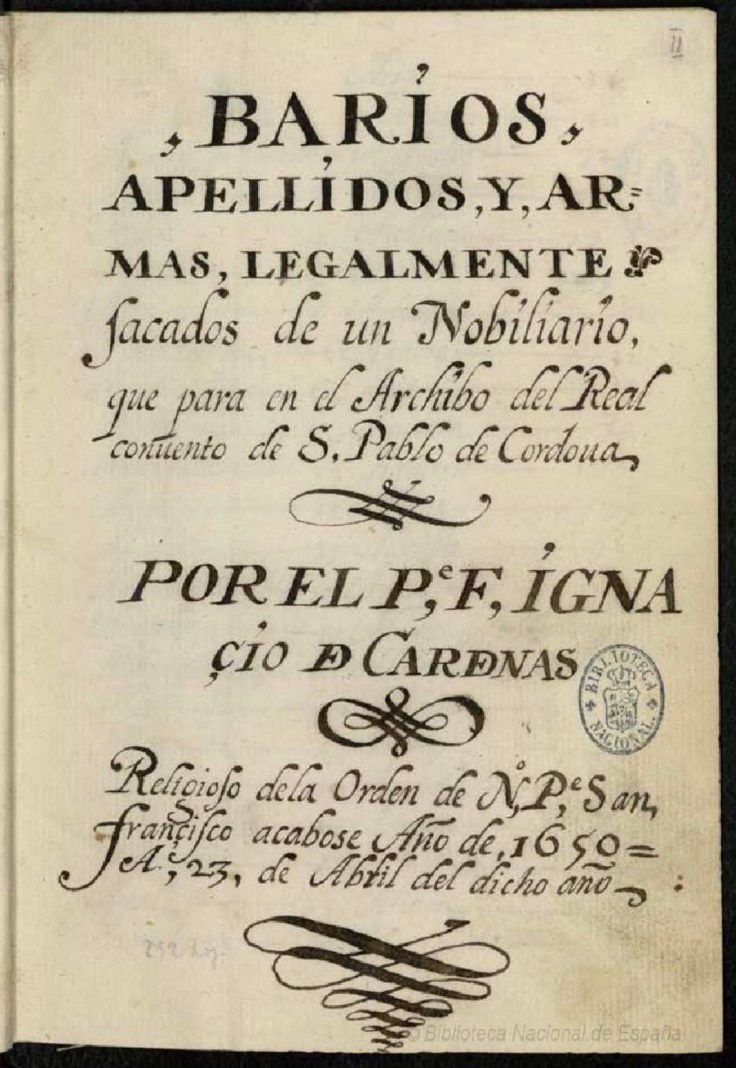 II
, BARÍOS,
APELLÍDOS, Y, AR=
MAS, LEGALMENTE
sacados de un Nobiliario,
que para en el Archibo del Real
conuento de S. Pablo de Cordoua,
POR EL P,e F, ÍGNA
çio DE CARDENAS
BIBLIOTECA NACIONAL
Religioso dela Orden de No, P,e San,
françisco acabose Año de, 1650=
A, 23, de Abril del dicho año, :
252 hoj.
© Biblioteca Nacional de España